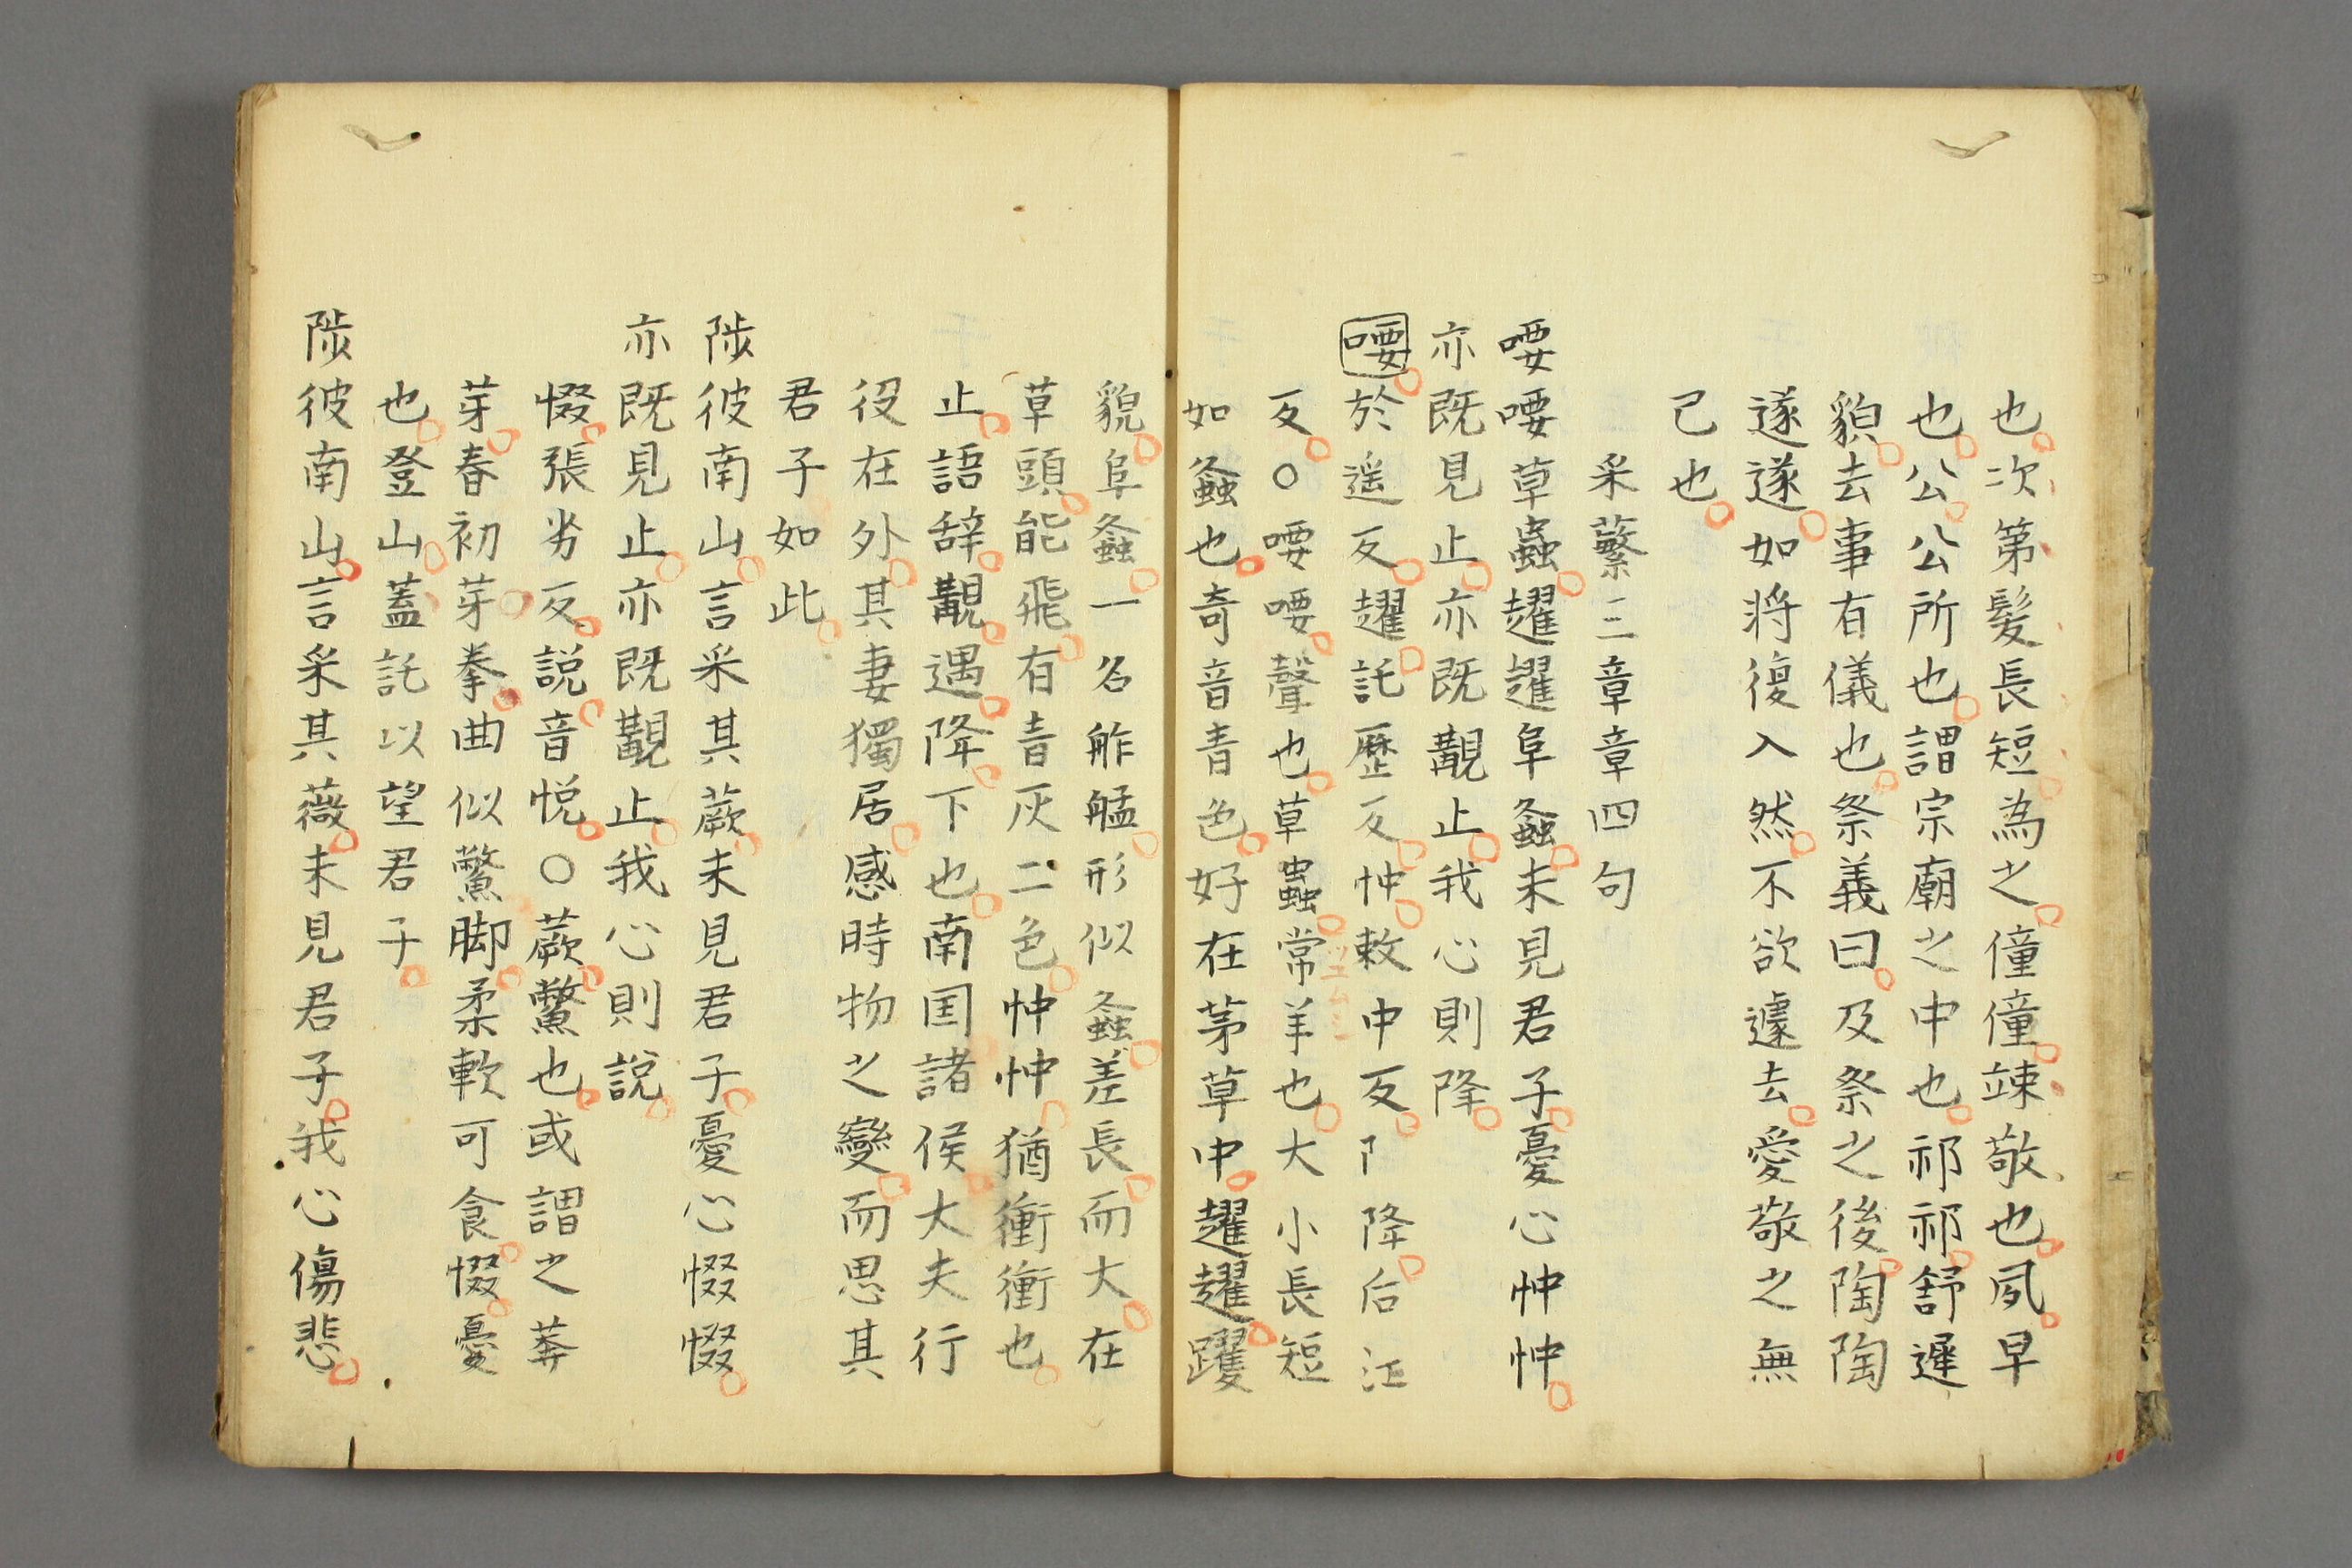 也次第髮長短為之僮僮竦敬也夙早
也公公所也謂宗廟之中也祁祁舒遲
貌去事有儀也祭義曰及祭之後陶陶
遂遂如將復入然不欲遽去愛敬之無
已也
采蘩三章章四句
喓喓草蟲趯趯阜螽未見君子憂心忡忡
亦既見止亦既覯止我心則降
喓於遥反趯託歷反忡敕中反阝降后江
反○喓喓聲也草蟲常羊也大小長短
如螽也奇音青色好在茅草中趯趯躍
貌阜螽一名舴艋形似螽差長而大在
草頭能飛有青灰二色忡忡猶衝衝也
止語辭覯遇降下也南国諸侯大夫行
役在外其妻獨居感時物之變而思其
君子如此
陟彼南山言采其蕨未見君子憂心惙惙
亦既見止亦既覯止我心則說
惙張劣反說音悦○蕨鱉也或謂之莽
芽春初芽拳曲似鱉脚柔軟可食惙憂
也登山蓋託以望君子
陟彼南山言采其薇未見君子我心傷悲